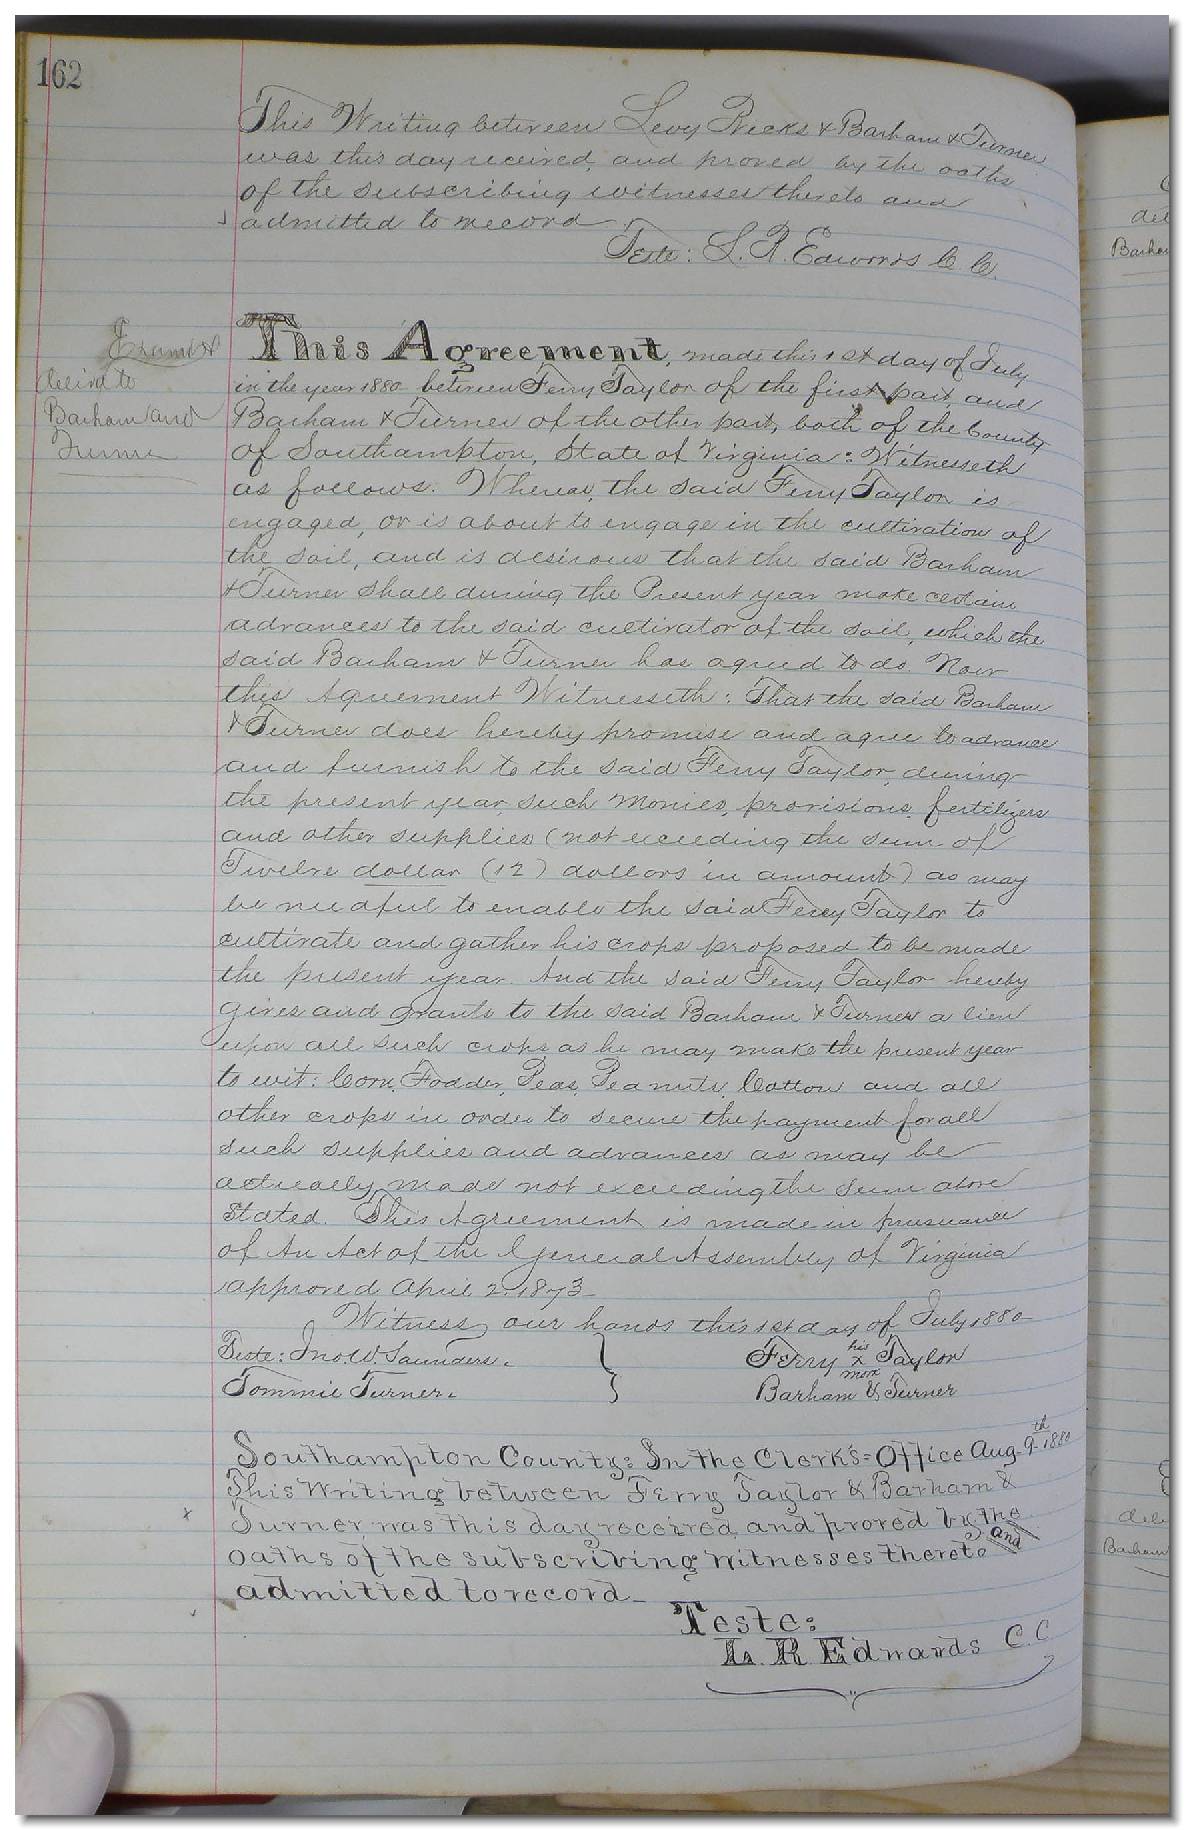 162
This Writing between Levy Ricks & Barham & Turner
was this day received, and proved by the oaths
of the subscribing witnesses thereto and
admitted to record
Teste: L. R. Edwards C. C.
Examd &
delivd to
Barham and
Turner
This Agreement, made this 1st day of July
in the year 1880 between Ferry Taylor of the first part, and
Barham & Turner of the other part, both of the County
of Southampton, State of Virginia: Witnesseth
as follows. Whereas, the said Ferry Taylor is
engaged, or is about to engage in the cultivation of
the soil, and is desirous that the said Barham
& Turner shall during the Present year make certain
advances to the said cultivator of the soil, which the
said Barham & Turner has agreed to do. Now
this Agreement Witnesseth: That the said Barham
& Turner does hereby promise and agree to advance
and furnish to the said Ferry Taylor, during
the present year, such monies, provisions, fertilizers
and other supplies (not exceeding the sum of
Twelve dollar (12) dollars in amount) as may
be needful to enable the said Ferry Taylor to
cultivate and gather his crops proposed to be made
the present year. And the said Ferry Taylor hereby
gives and grants to the said Barham & Turner a lien
upon all such crops as he may make the present year
to wit: Corn, Fodder, Peas, Peanuts, Cotton and all
other crops in order to secure the payment for all
such supplies and advances as may be
actually made not exceeding the sum above
stated. This Agreement is made in pursuance
of An Act of the General Assembly of Virginia
approved April 2, 1873
Witness our hands this 1st day of July, 1880
Teste: Jno. W. Saunders. Ferry his x mark Taylor
Tommie Turner. Barham & Turner
Southampton County: In the Clerk's Office Aug. 9th 1880
This Writing between Ferry Taylor & Barham &
Turner, was this day received, and proved by the
oaths of the subscribing witnesses thereto and
admitted to record
Teste:
L. R. Edwards C. C.
del
Barham
del
Barham